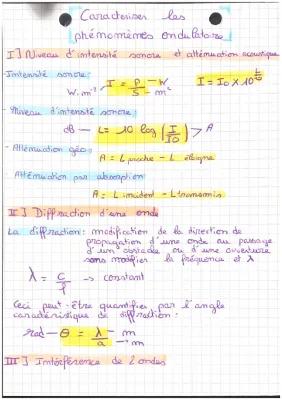 Caractériser les
phénomènes ondulatoires
I] Niveau d'intensité sonore et atténuation acoustique
- Intensité sonore: I = P/S - W / m²  I = I0 × 10^(L/10)
W.m⁻²
- Niveau d'intensité sonore:
dB — L = 10 log (I/I0) > A
- Atténuation géo:
A = L proche - L éloigné
- Atténuation par absorption
A = L incident - L transmis
II] Diffraction d'une onde
La diffraction: modification de la direction de
propagation d'une onde au passage
d'un obstacle ou d'une ouverture
sans modifier la fréquence et λ
λ = c/f → constant
Ceci peut-être quantifier par l'angle
caractéristique de diffraction:
rad — θ = λ/a - m → m
III] Interférence de 2 ondes